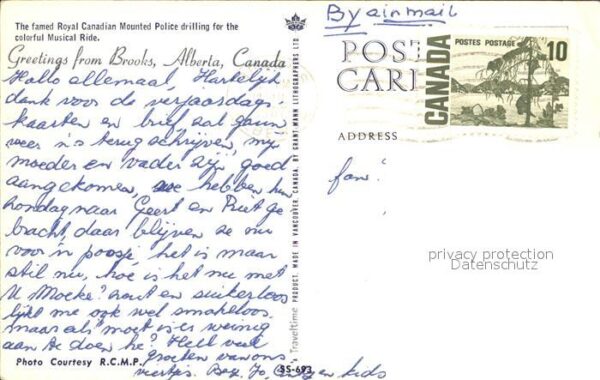 The famed Royal Canadian Mounted Police drilling for the
colorful Musical Ride.
Greetings from Brooks, Alberta, Canada
Hallo allemaal, Hartelijk
dank voor de verjaardags-
kaarten en brief, zal gaun
weer n's terug schrijven, my
moeder en vader zijn goed
aangekomen, we hebben hun
zondag naar Geert en Piet ge
bracht, daar blijven ze nu
voor 'n poosje, het is maar
stil nu, hoe is het nu met
U Moeke? zout en suikerloos
lijkt me ook wel smakeloos.
maar als 't moet is er weinig
aan te doen he? Heel veel
groeten van ons
viertjes. Jo, en kids
Photo Courtesy R.C.M.P.
SS-693
A Traveltime PRODUCT. MADE IN VANCOUVER, CANADA, BY GRANT-MANN LITHOGRAPHERS LTD.
By air mail
POST
CARD
ADDRESS
fam:
CANADA
POSTES POSTAGE
10
privacy protection
Datenschutz